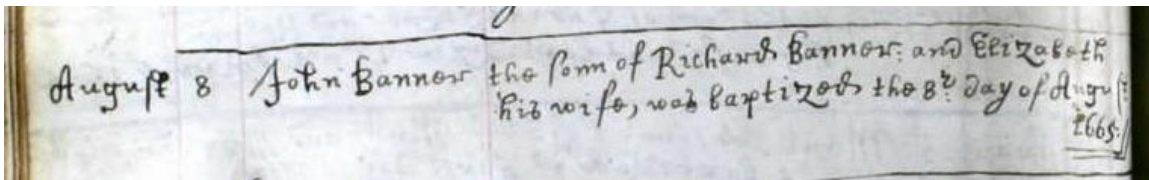 August 8 John Banner the sonn of Richard Banner: and Elizabeth
his wife, was baptized the 8th day of August:
1665: